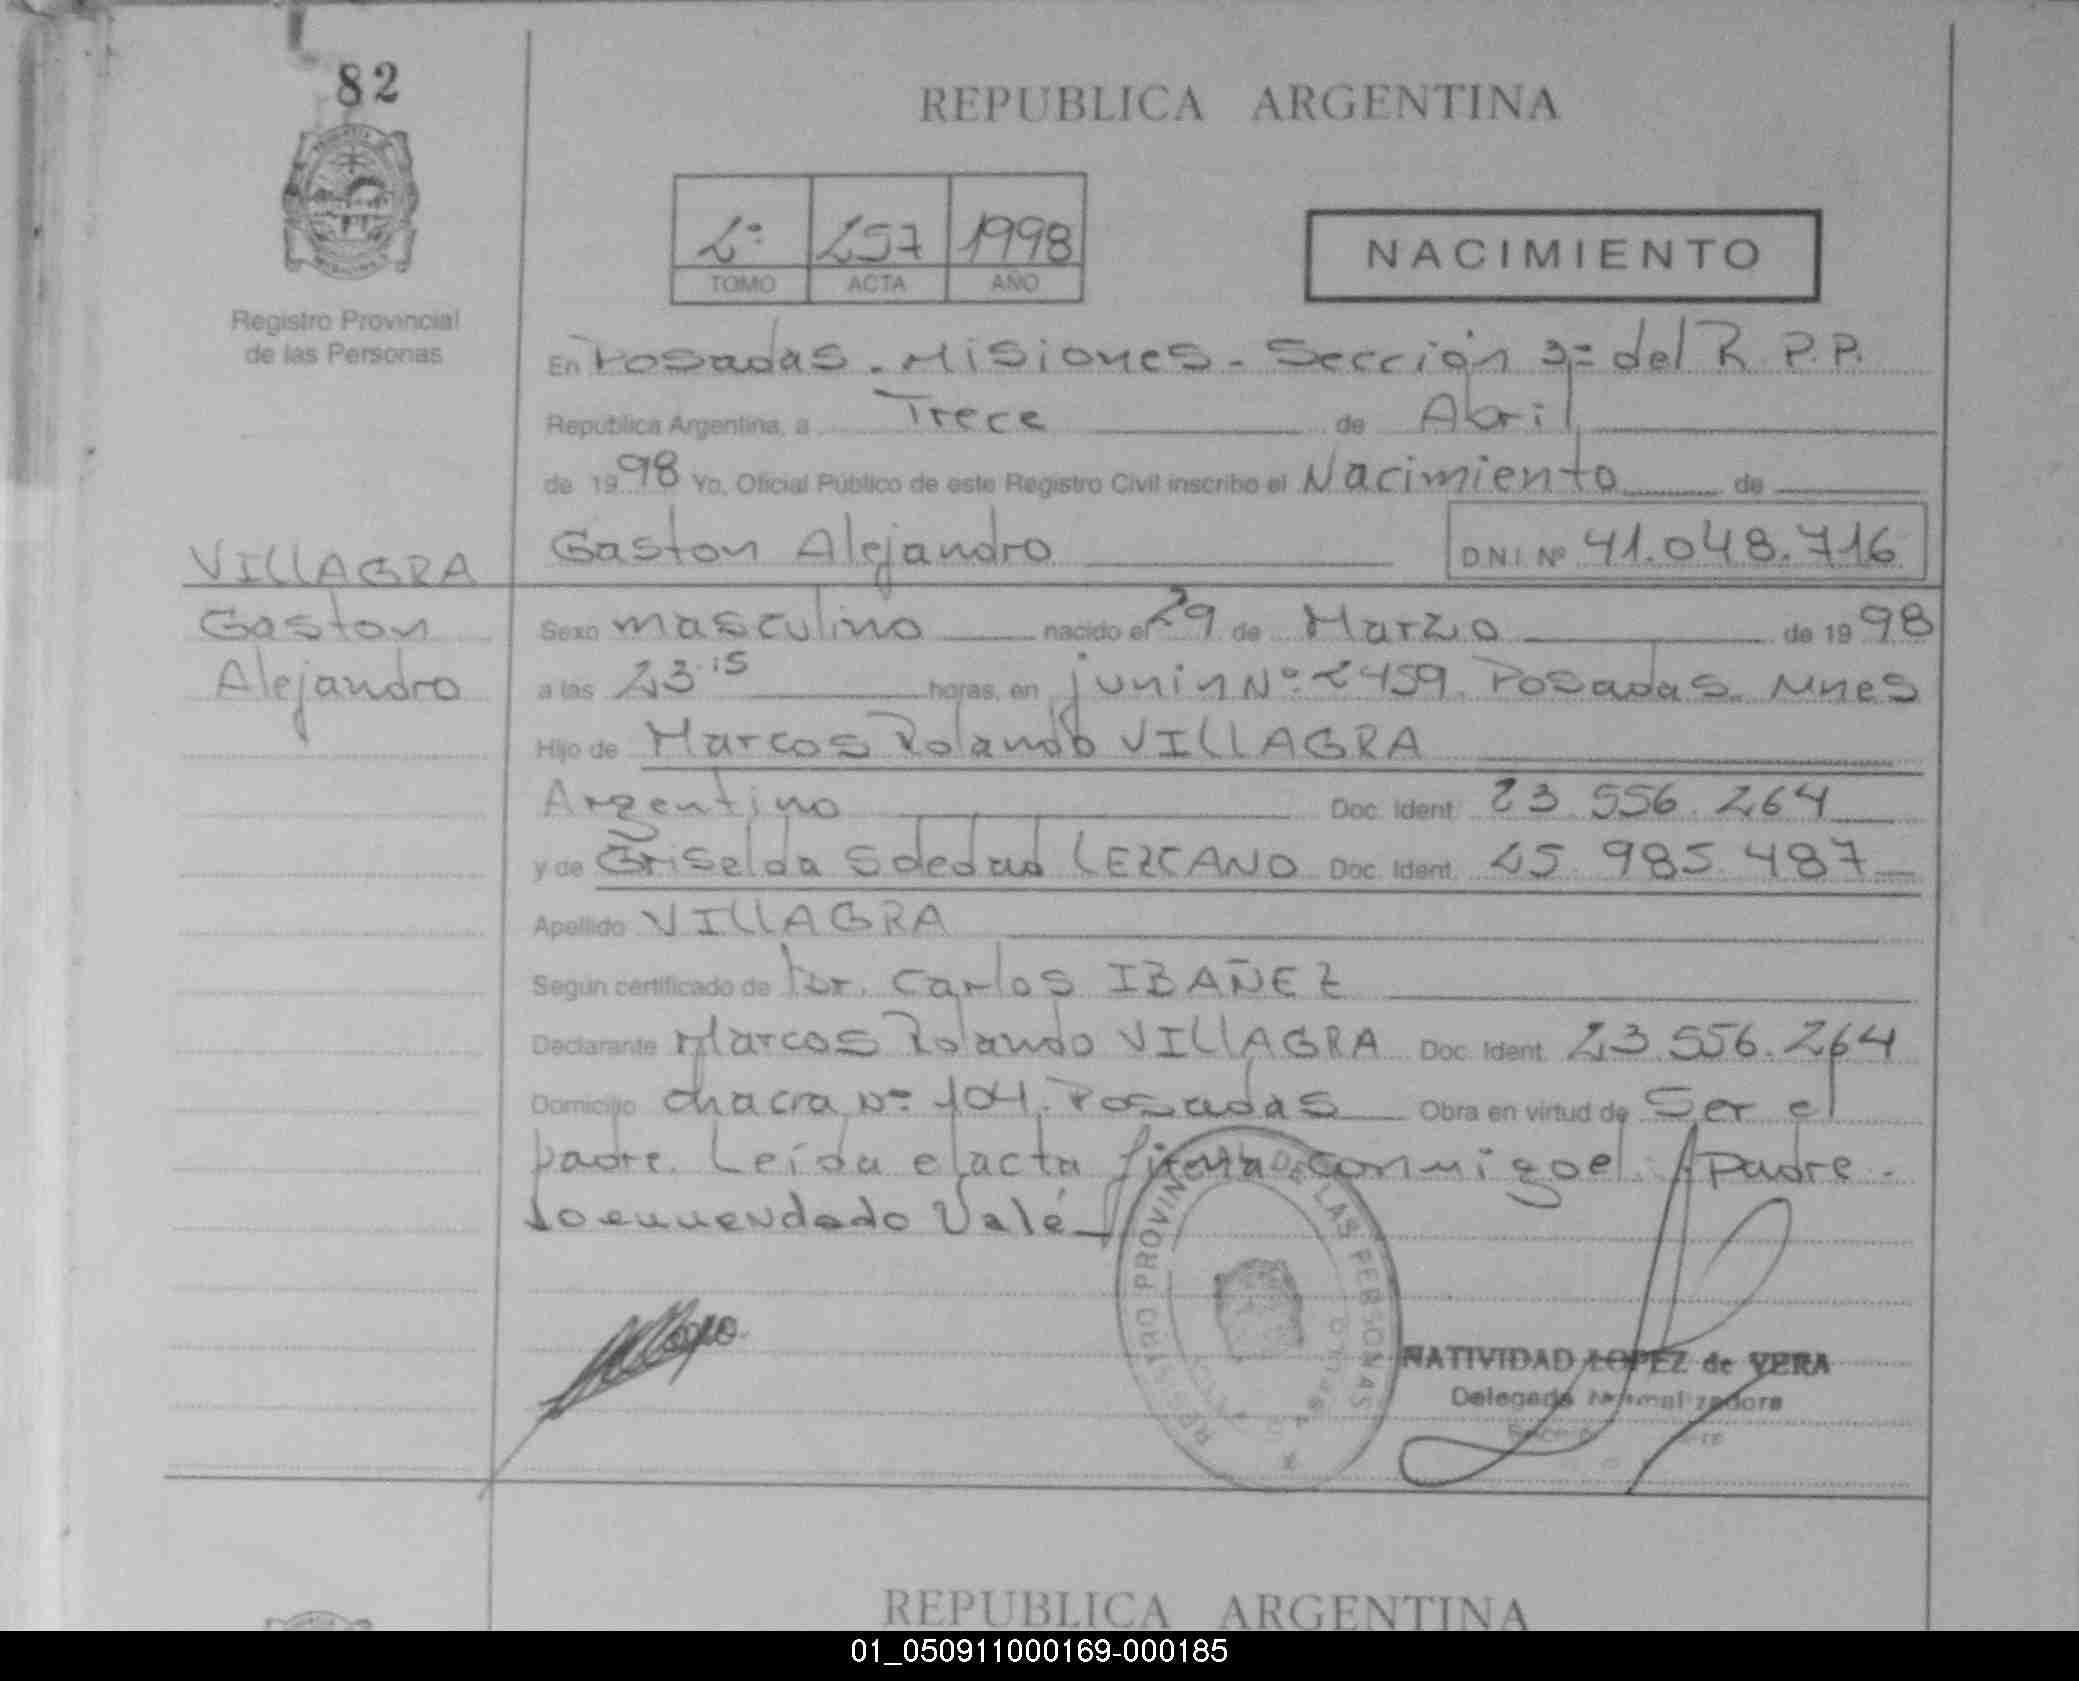 82
REPUBLICA ARGENTINA
2º 257 1998
TOMO ACTA AÑO
NACIMIENTO
Registro Provincial
de las Personas
En Posadas - Misiones - Sección 3ª del R.P.P.
Republica Argentina, a Trece de Abril
de 1998 Yo, Oficial Público de este Registro Civil inscribo el Nacimiento de
VILLAGRA
Gaston Alejandro D.N.I. Nº 41.048.716
Gaston
Alejandro
Sexo masculino nacido el 29 de Marzo de 1998
a las 23:15 horas, en junin Nº 2459. Posadas. Mnes
Hijo de Marcos Rolando VILLAGRA
Argentino Doc. Ident. 23.556.264
y de Griselda Soledad LEZCANO Doc. Ident. 25.985.487
Apellido VILLAGRA
Según certificado de Dr. Carlos IBAÑEZ
Declarante Marcos Rolando VILLAGRA Doc. Ident. 23.556.264
Domicilio chacra Nº 104. Posadas Obra en virtud de Ser el
padre. Leída el acta firma conmigo el padre.
Lo enmendado Vale
REGISTRO PROVINCIAL DE LAS PERSONAS
NATIVIDAD LOPEZ de VERA
Delegada Normalizadora
REPUBLICA ARGENTINA
01_050911000169-000185